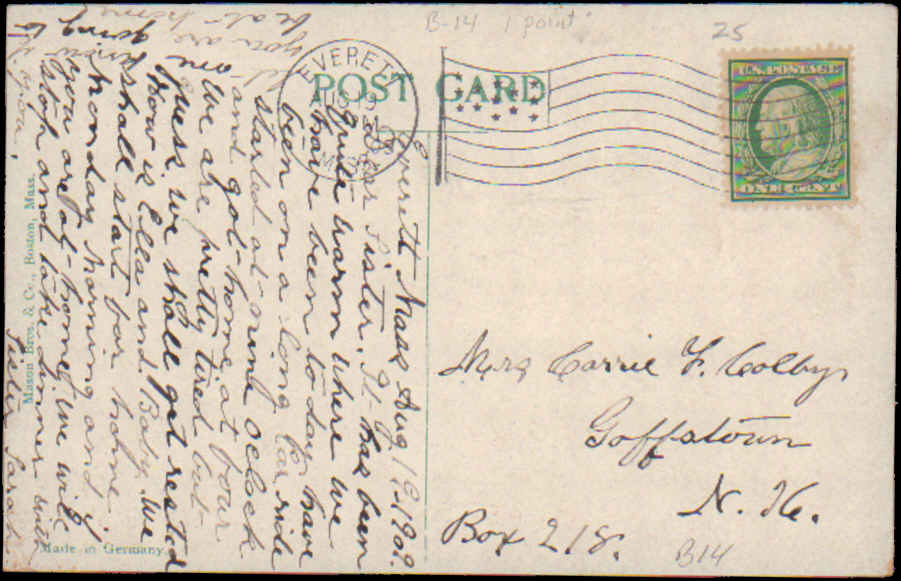 B-14 1 point
25
POST CARD
EVERETT
MASS.
U.S. POSTAGE
ONE CENT
Everett Mass Aug 19, 1909.
Dear Sister. It has been
quite warm where we
have been to day have
been on a long car ride
started at nine oclock
and got home at four
We are pretty tired but
guess we shall get rested
How is Ella and Baby. We
shall start for home
Monday morning and if
you are at home we will
stop and take dinner with
you.
Sister Sarah
you are
going to
be at home
Mrs Carrie F. Colby
Goffstown
N. H.
Box 218.
B14
Mason Bros. & Co., Boston, Mass.
Made in Germany.